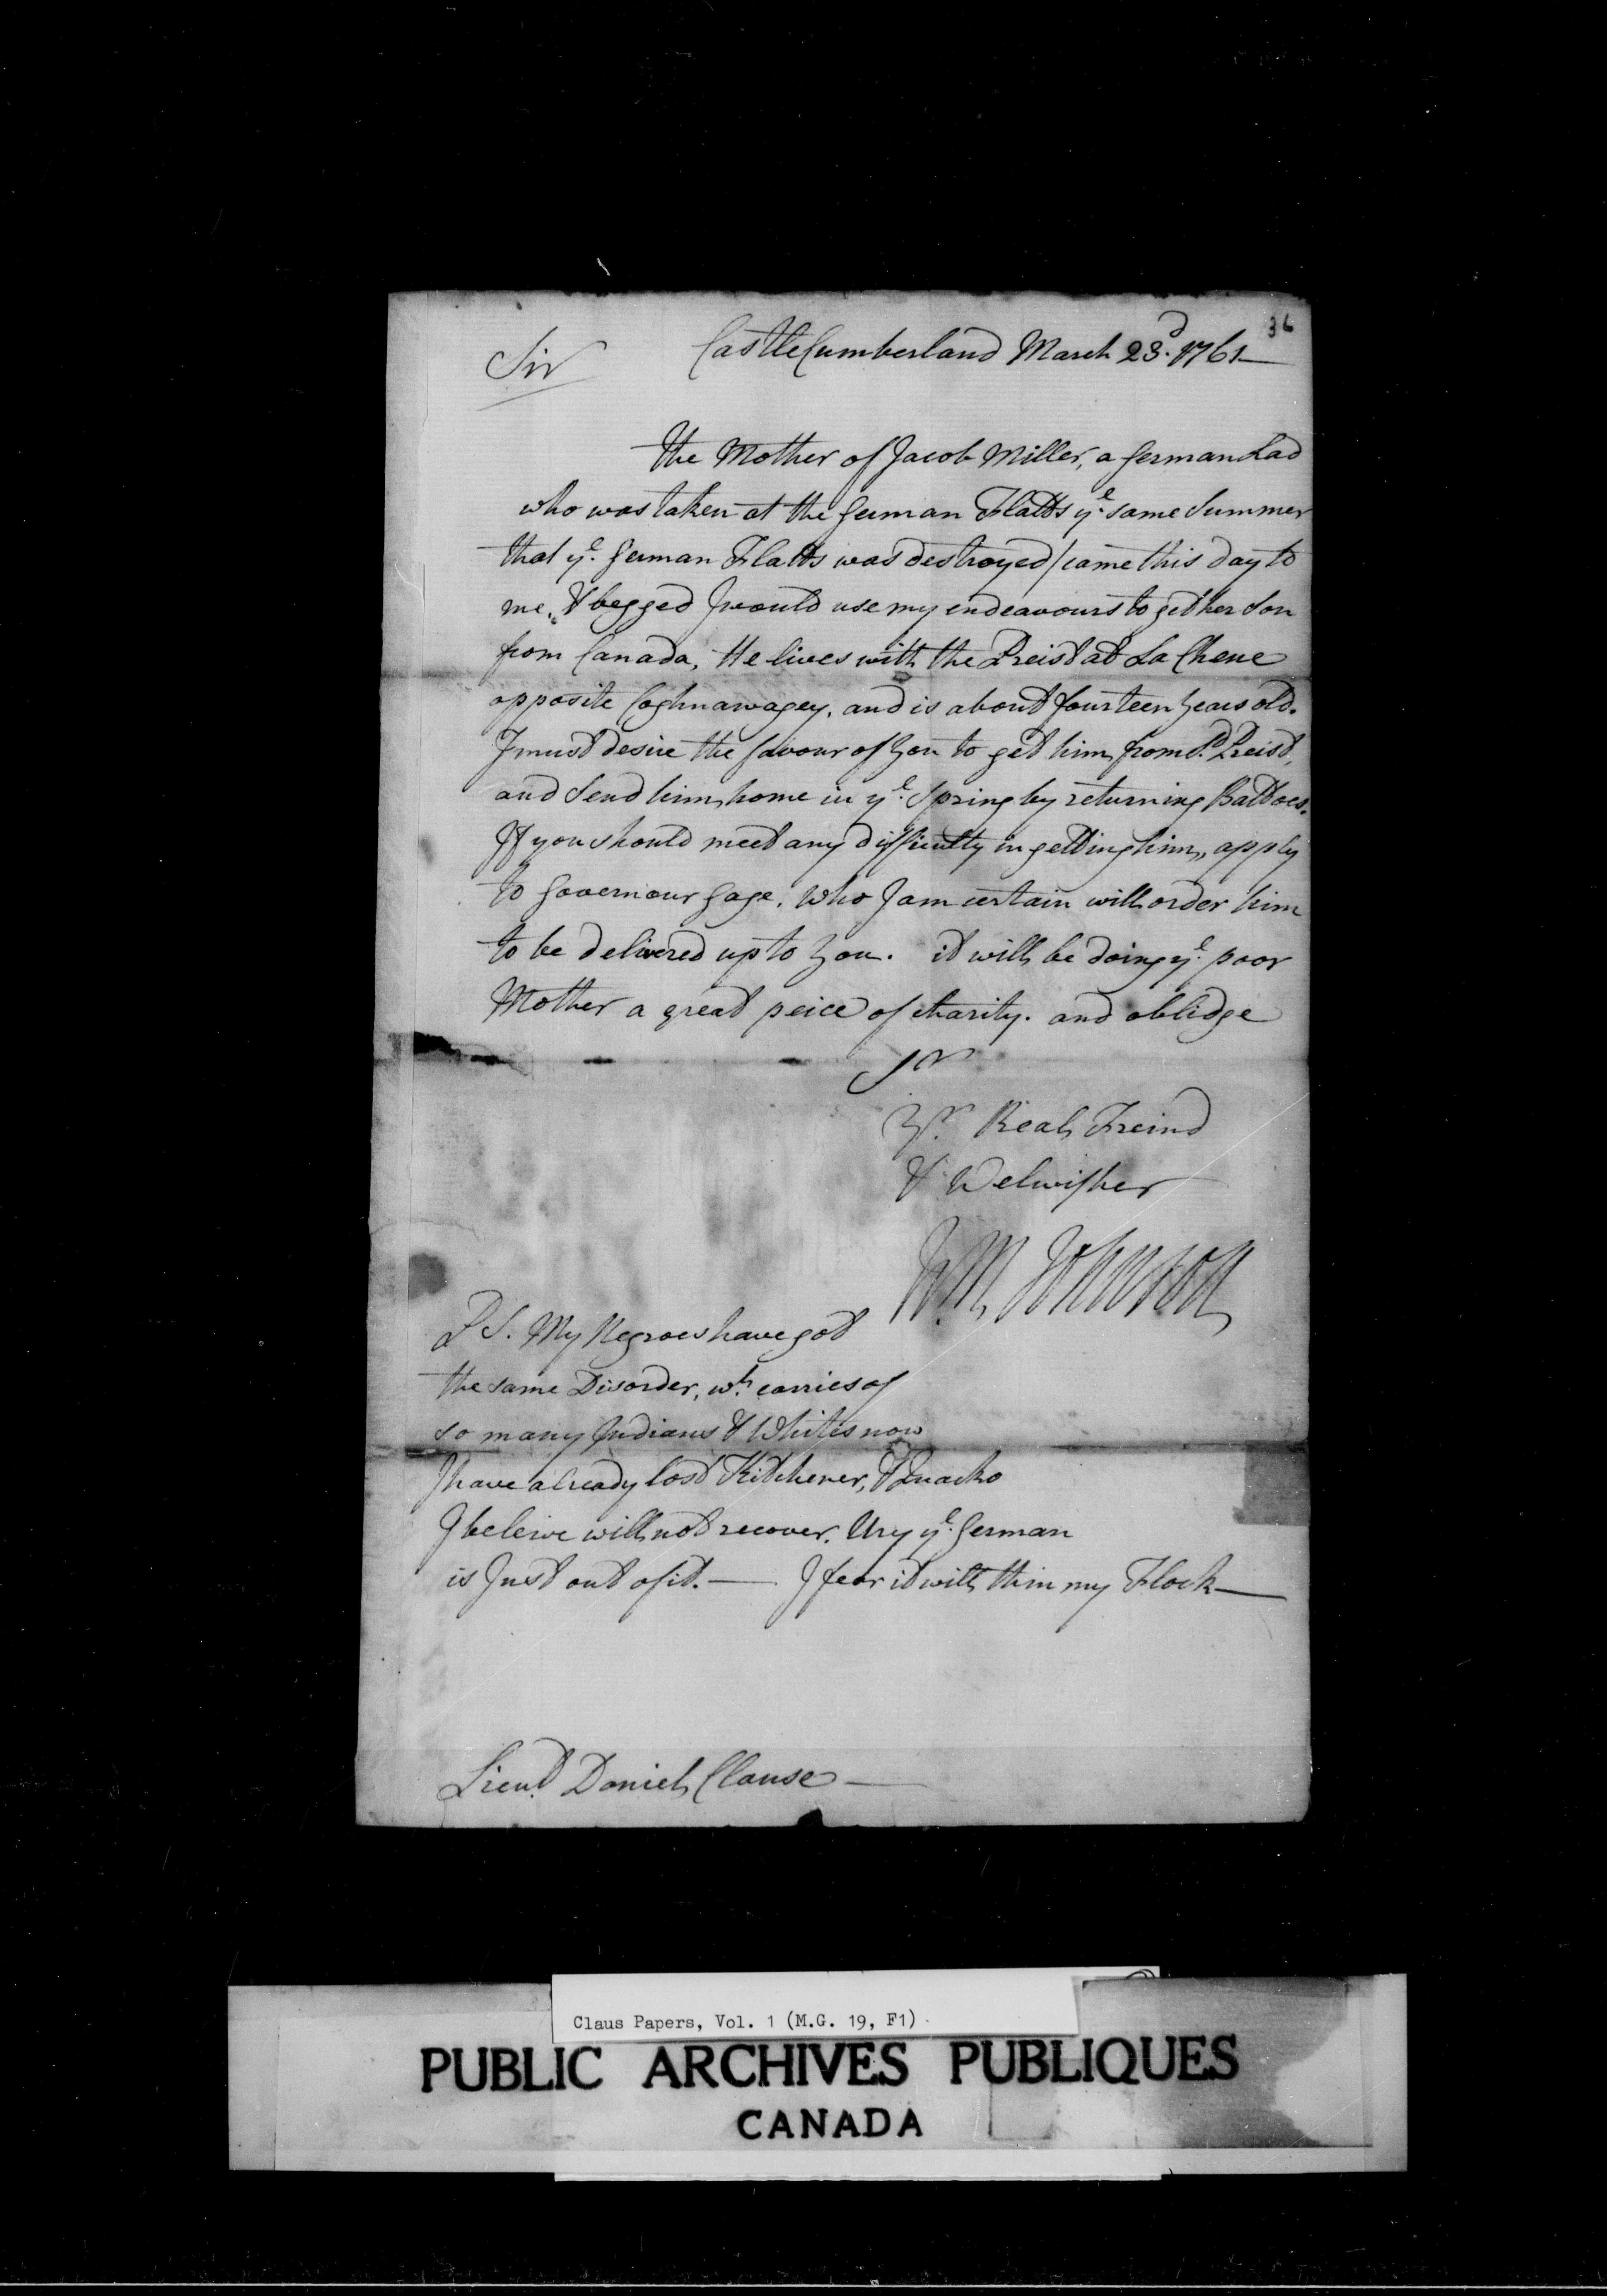 36
Castle Cumberland March 23.d 1761—
Sir
The Mother of Jacob Miller, a German Lad
who was taken at the German Flatts ye. same Summer
that ye. German Flatts was destroyed / came this day to
me, & begged I would use my endeavours to get her Son
from Canada, He lives with the Preist at La Chene
opposite Coghnawagey, and is about fourteen Years old.
I must desire the favour of You to get him from sd. Preist,
and Send him home in ye. Spring by returning Battoes.
If you should meet any difficulty in getting him, apply
to Governour Gage, who I am certain will order him
to be delivered up to You. it will be doing ye. poor
Mother a great peice of charity. and oblidge
Sr
Yr. Real Freind
& Welwisher
Wm. Johnson
P S. My Negroes have got
the same Disorder, wh. carries of
so many Indians & Whites now
I have already lost Kitchener, &
I beleive will not recover. Ury ye. German
is Just out of it.— I fear it will thin my Flock—
Lieut. Daniel Clause—
Claus Papers, Vol. 1 (M.G. 19, F1)
PUBLIC ARCHIVES PUBLIQUES
CANADA